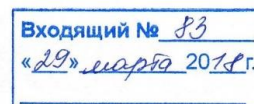 Входящий № 83
«29» марта 2018 г.